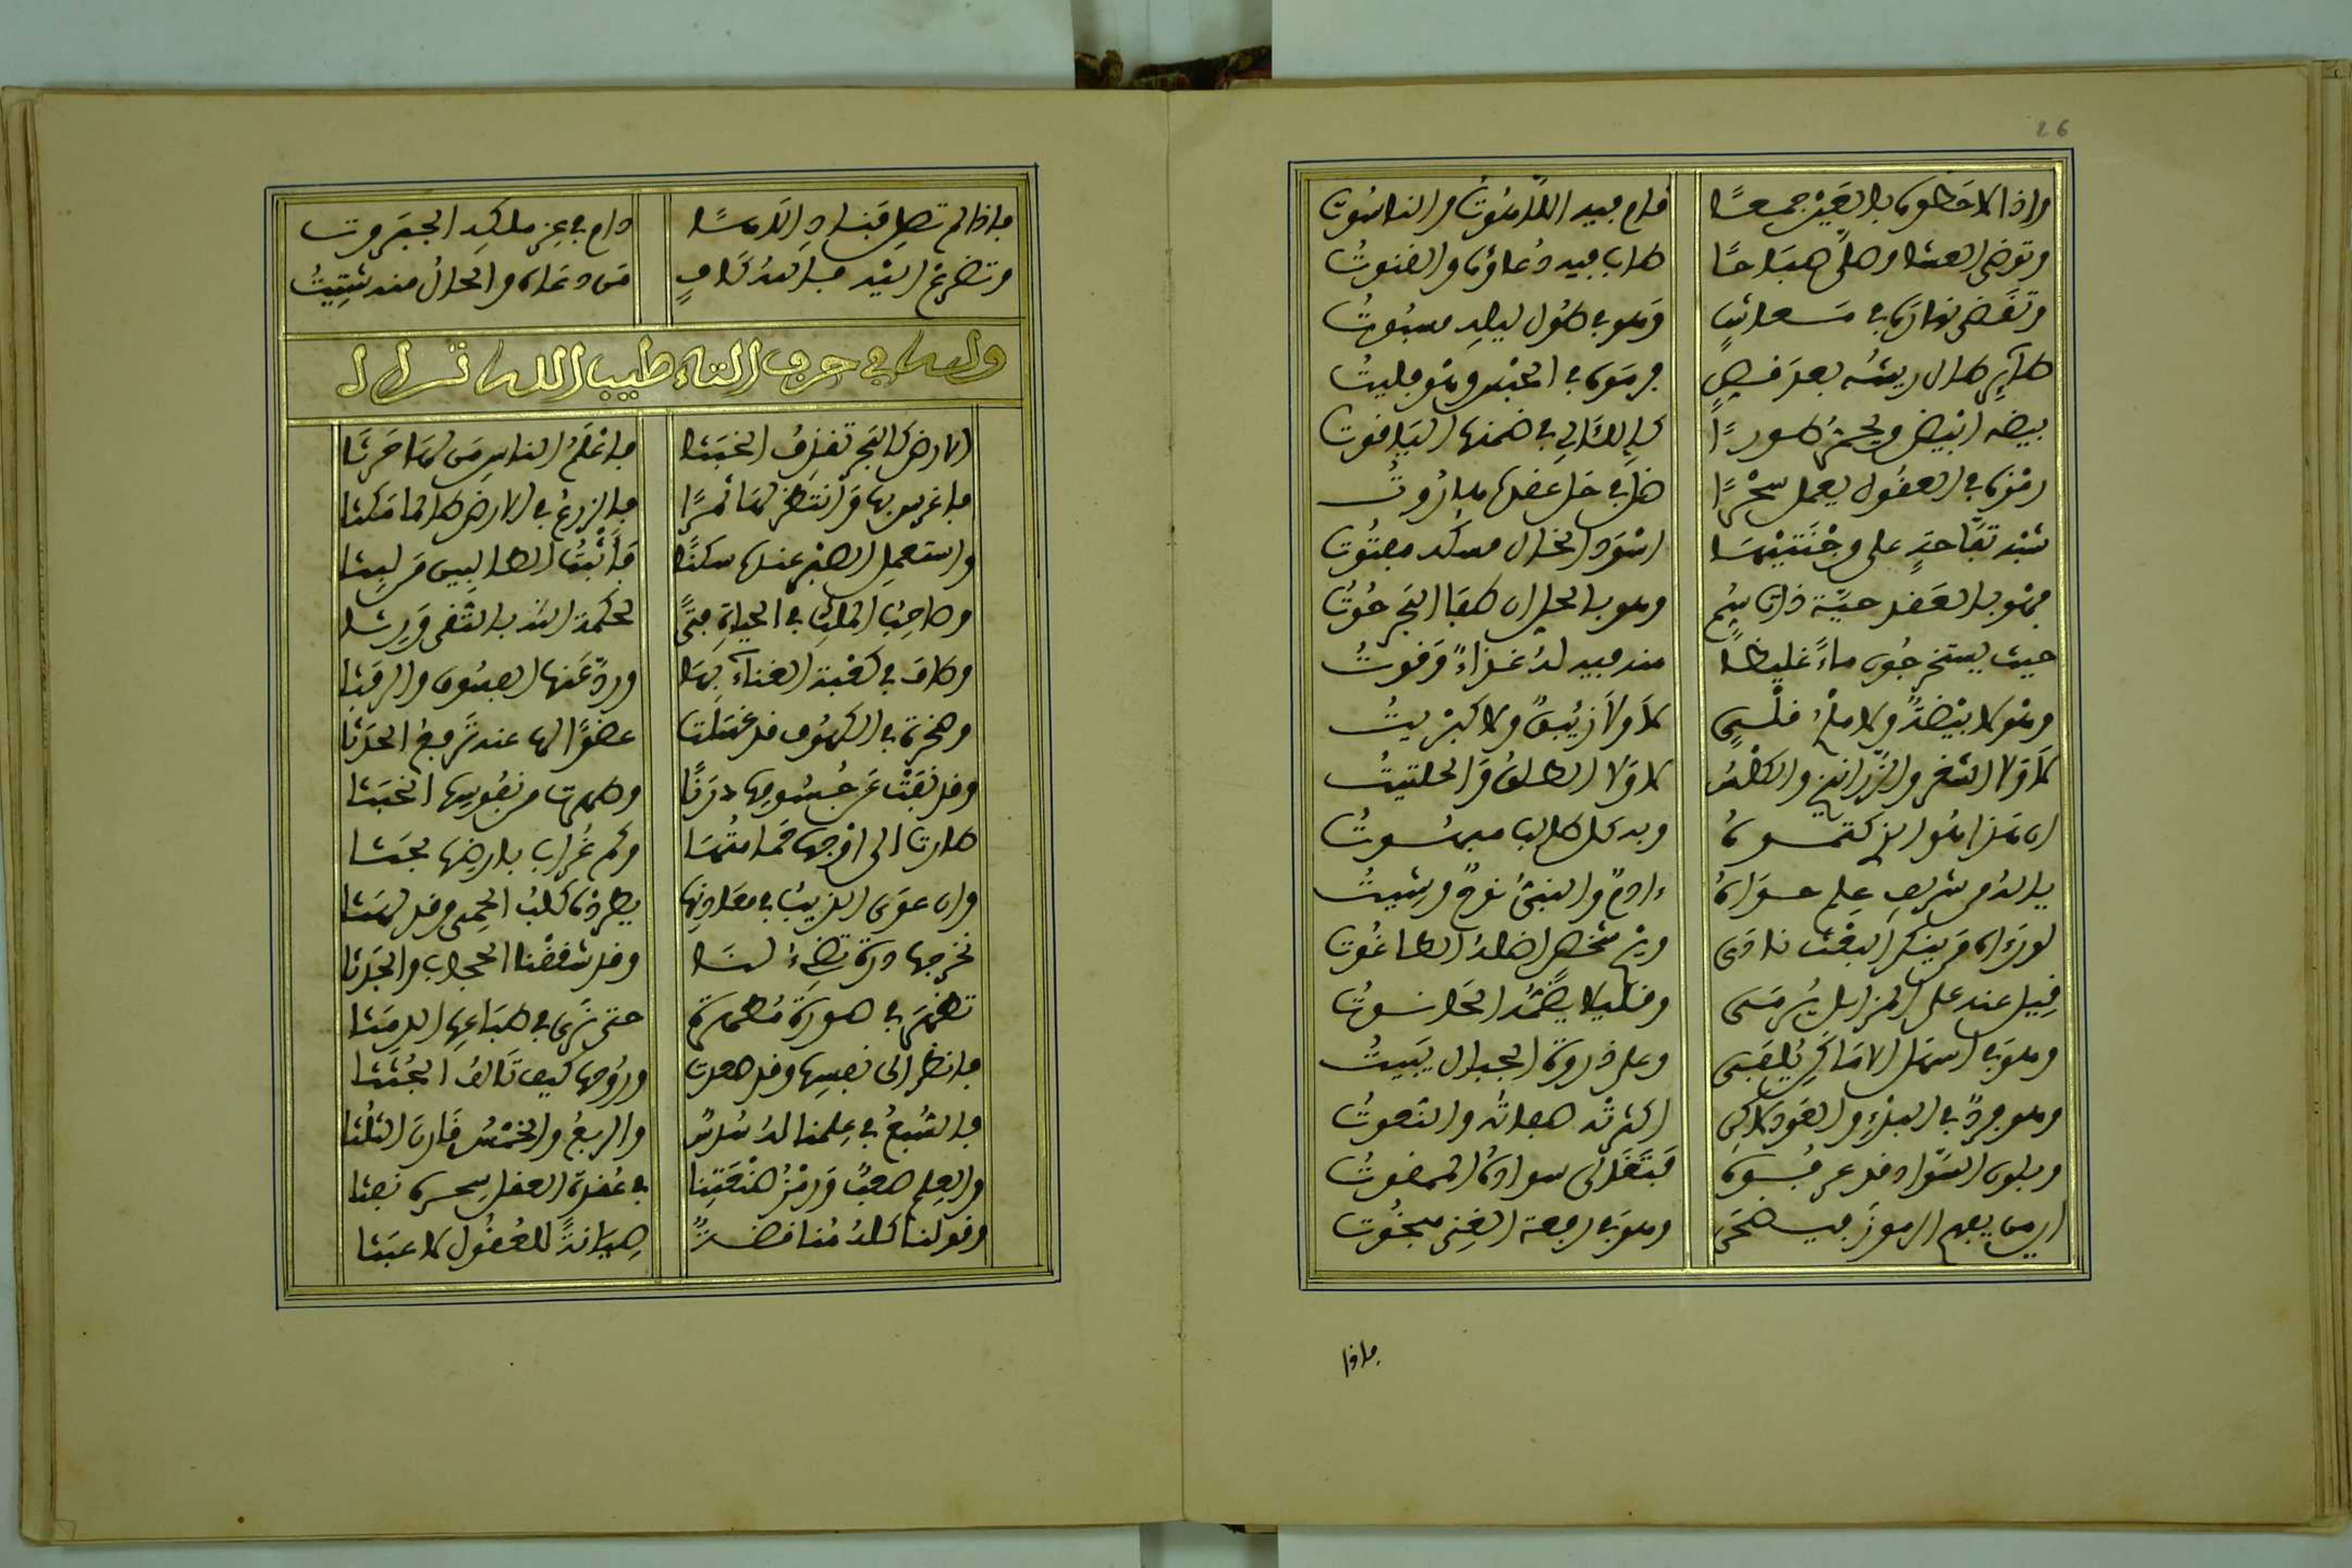 26
واذا لاحظوه بالغير جمعا قام فيه اللاهوت والناسوت
وتوضى العشا وصلى صباحا طاب فيه دعاؤه والقنوت
وتقضى نهاره في وهو في طول ليله مسبوت
طاير طال ريشه بعد قص
بيضه ابيض ويحمر طورا في ضمنها الياقوت
رمزه في العقول يعمل سحرا ضل في حل عقدها ماروت
شبه تفاحة على وجنتيها اسود الخال مسكه مفتوت
فهو بالعقد حية ذات سم وهو بالحل ان طفا البحر حوت
حيث يستخرجون ماء غليظا منه فيه له غذاء وقوت
وهو لا بيضة ولا ملح قلي لا ولا زئبق ولا كبريت
لا ولا الشعر والزرانيخ والكلس لا ولا الطلق والحلتيت
ان هذا هو الذي كتموه وبه كل طالب مبهوت
ياله من شريف علم حواه ءادم والنبي نوح وشيث
لو رءاه من ينكر البعث نادى شخص اضله الطاغوت
قيل عنه على المزابل يرمى وقليلا يضمه الحانوت
وهو في اسهل الاماكن يلقى وعلى ذروة الجبال يبيت
وهو فرد في البدء والعود لاكن اكثرته صفاته والنعوت
وبلون السواد قد عرفوه فبتغلى سواده الممقوت
اين من يفهم الرموز فيضحى وهو في رفعة الغنى مبخوت
فاذا
فاذا لم تصل قناد اللامسا دام في عز ملكه الجبروت
وتضرع اليه فالله كاف من دعاه والحال منه شتيت
وله في حرف الثاء طيب الله ثراه
الارض كالبحر تقذف الخبثا فاعلم الناس من لها حرثا
فاغرس بها وانتظر لها ثمرا فالزرع في الارض طالما مكثا
واستعمل الصبر عندها سكنا فاثبت الطالبين من لبثا
وصاحب الملك في الحياة فتى لحكمة الله بالتقى ورثا
وطاف في كعبة الغناء بها ورد عنها الفسوق والرفثا
وصخرة في الكهوف قد غسلت عضوا لها عند رفع الحدثا
وقد نفت عن جسومها درنا وطهرت من نفوسها الخبثا
طارت الى اوجها حمامتها وكم غراب بارضها بحثا
وان عوى الذيب في معادنها يطرده كلب الحمى وقد لهثا
نخرجها درة تضيء لنا وقد شققنا الحجاب والجدثا
تظهر في صورة مطهرة حتى ترى في طباعها الدمثا
فانظر الى نفسها وقد صعدت وروحها كيف تالف الجثثا
فالسبع في علمنا له سدس والربع والخمس قارن الثلثا
والعلم صعب ورمز صنعتنا في عقدة العقل سحره نفثا
وقولنا كله مناقضة صيانة للعقول لا عبثا